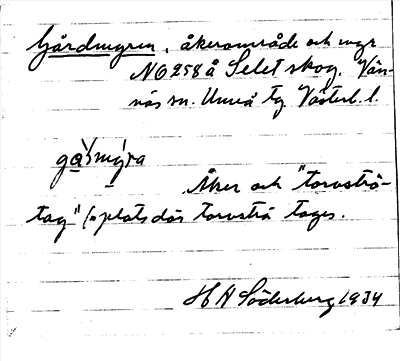 Gårdmyren, åkerområde och myr
NG258 å Selet skog. Vän-
näs sn. Umeå tg Västerb. l.
Åker och "torvströ-
tag" (= plats där torvströ tages.
H H Söderberg 1934